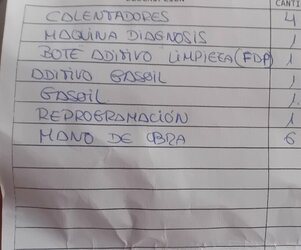 CANTI
CALENTADORES 4
MAQUINA DIAGNOSIS 1
BOTE ADITIVO LIMPIEZA (FDP) 1
ADITIVO GASOIL 1
GASOIL 1
REPROGRAMACIÓN 1
MANO DE OBRA 6